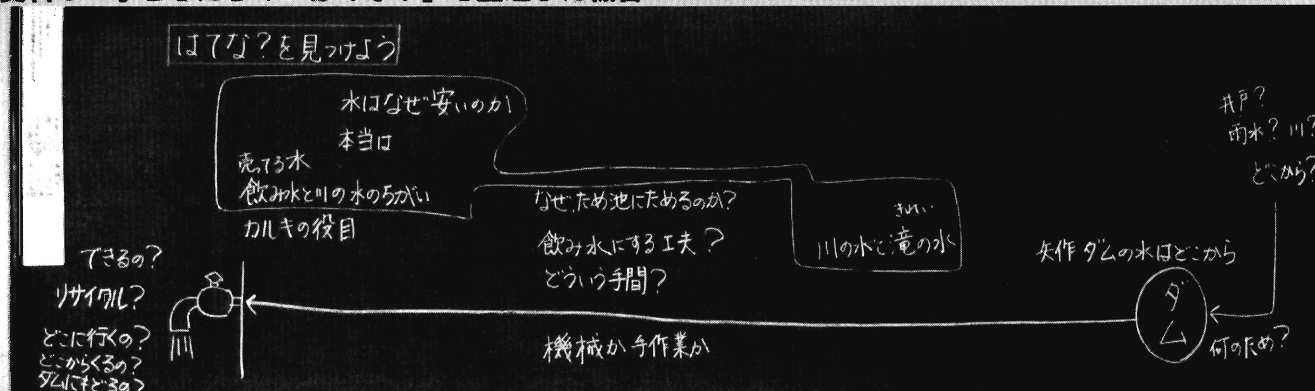 はてな?を見つけよう
水はなぜ安いのか
本当は
売ってる水
飲み水と川の水のちがい
カルキの役目
なぜ、ため池にためるのか?
飲み水にする工夫?
どういう手間?
きれい
川の水と滝の水
井戸?
雨水? 川?
どこから?
矢作ダムの水はどこから
ダム
何のため?
機械か手作業か
できるの?
リサイクル?
どこに行くの?
どこからくるの?
ダムにもどるの?